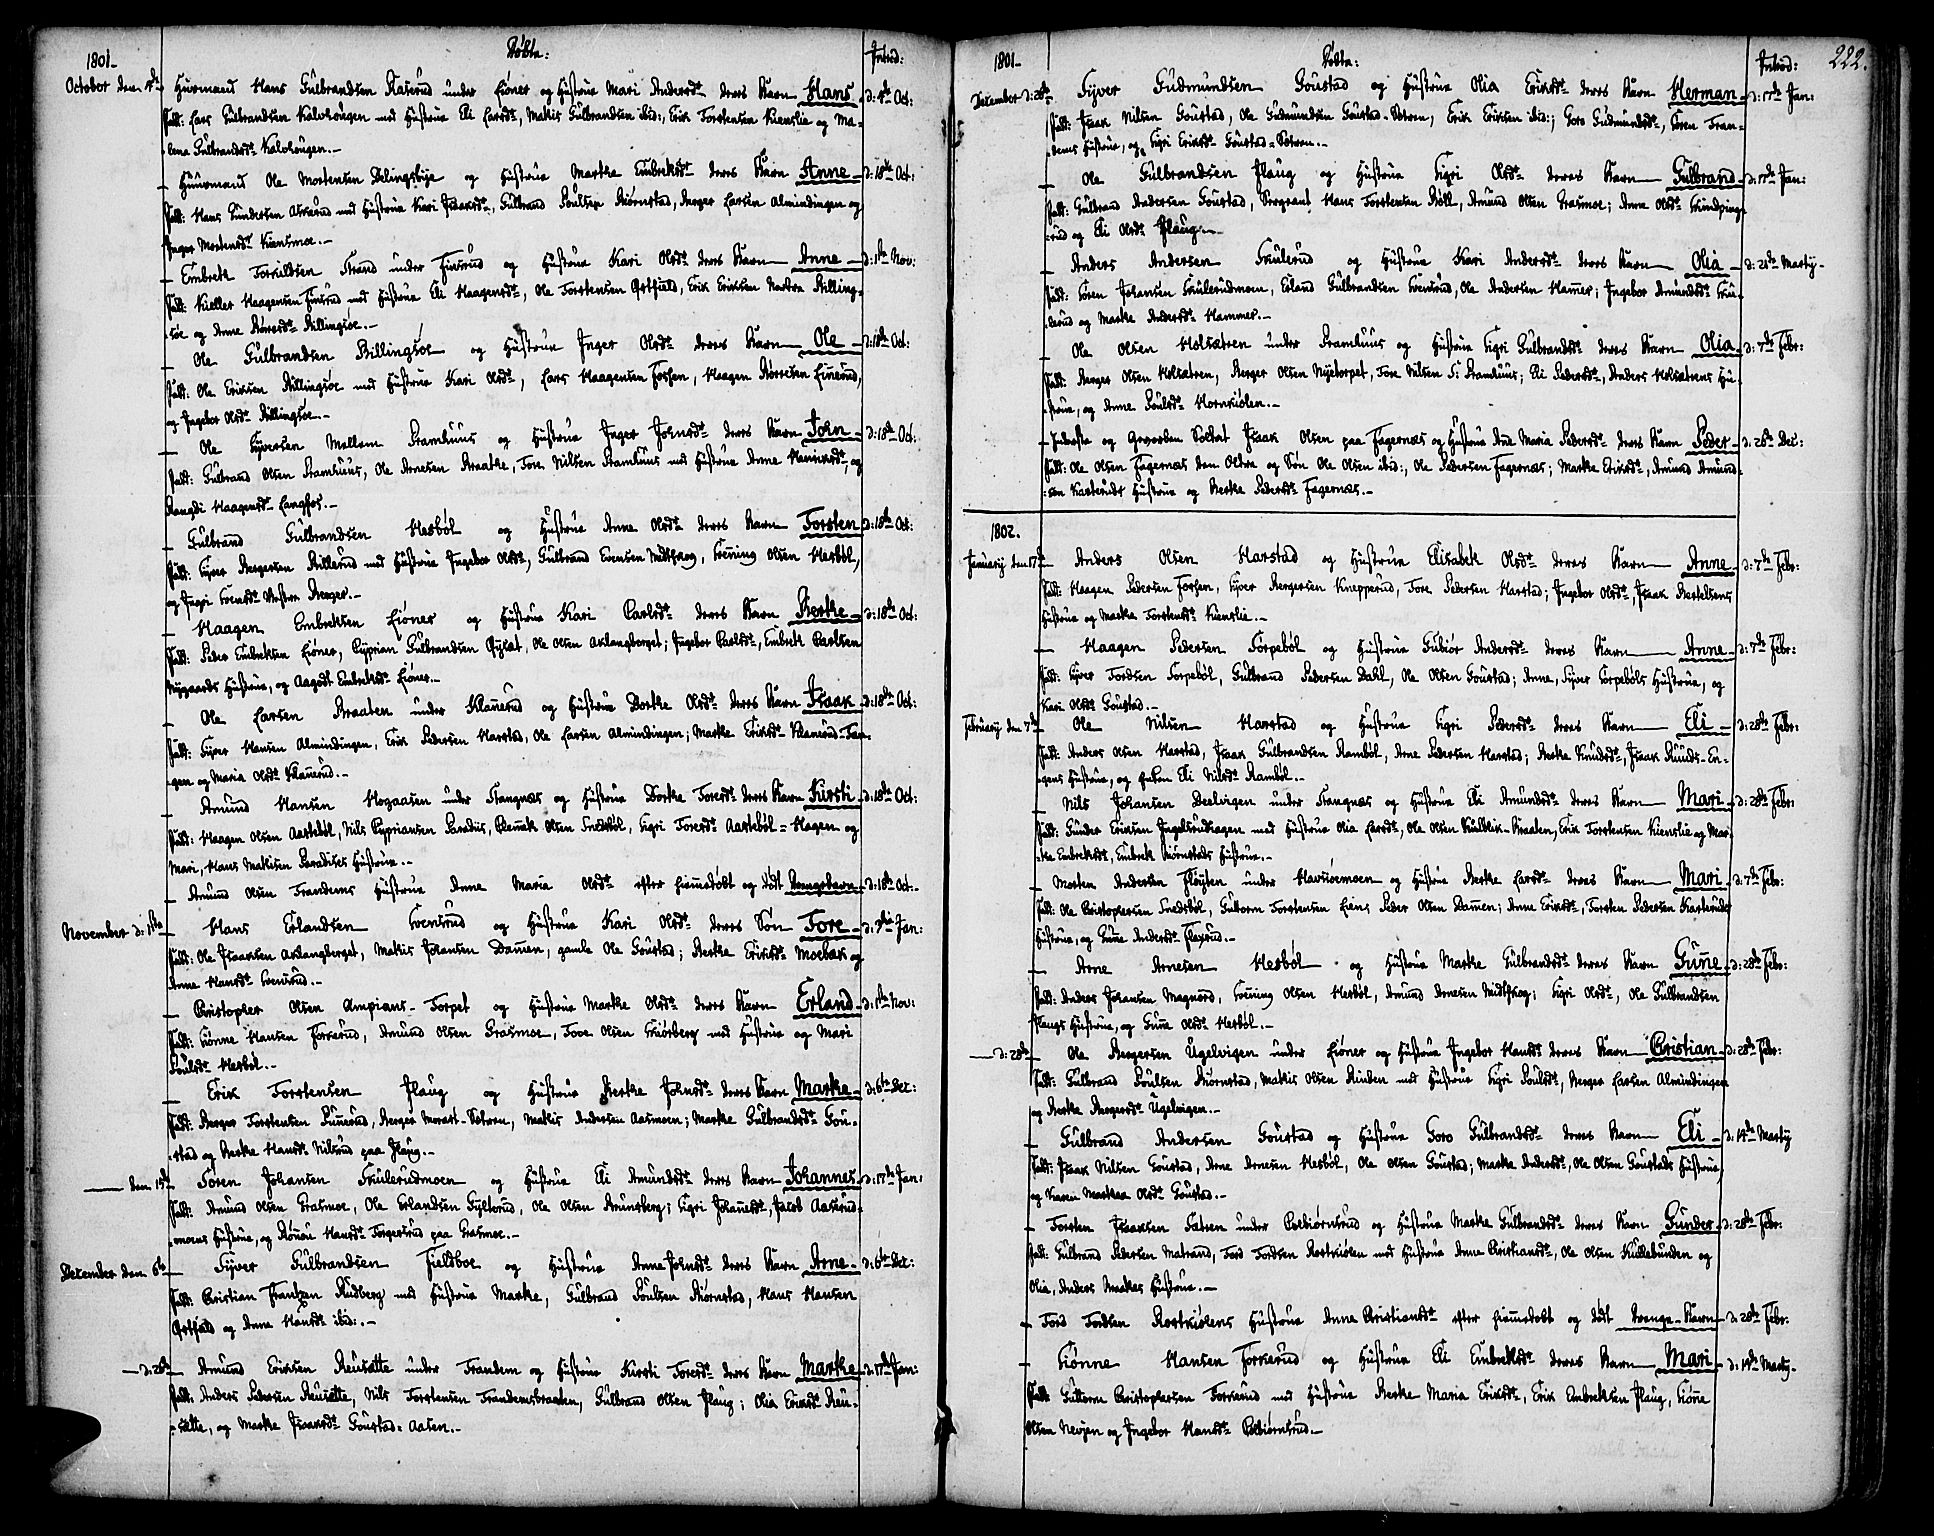 1801.
Döbte:
Introd:
October den 4de Huusmand Hans Gulbrandsen under Liöner og Hustrue Mari Andersdr deres Barn Hans d: 4de Oct:
Fadd: Lars Gulbrandsen Kalvhougen med Hustrue Eli Larsdr, Mathis Gulbrandsen ibid:, Erik Torstensen Kienslie og Ma-
lena Gulbrandsdr Kalvhougen.
Huusmand Ole Mortensen og Hustrue Marthe Embretsdr deres Barn Anne d: 18de Oct:
Fadd: Hans Gundersen med Hustrue Kari Isaaksdr, Gulbrand Poulsen Biörnstad, Berger Larsen Almindingen og
Inger Mortensdr Kiensmoe.
Embret Torkildsen Strand under Finsrud og Hustrue Kari Olsdr deres Barn Anne d: 1ste Nov:
Fadd: Kield Haagensen Finsrud med Hustrue Eli Haagensdr, Ole Torstensen Östfield, Erik Eriksen Nordre Billing-
söe og Anne Billingsöe.
Ole Gulbrandsen Billingsöe og Hustrue Inger Olsdr deres Barn Ole d: 18de Oct:
Fadd: Ole Eriksen Billingsöe med Hustrue Kari Olsdr, Lars Haagensen Forsen, Haagen Linerud,
og Ingebor Olsdr Billingsöe.
Ole Syversen Mellem Bramhuus og Hustrue Inger Johnsdr deres Barn John d: 18de Oct:
Fadd: Gulbrand Olsen Bramhuus, Ole Arnesen Braathe, Tore Nilsen Bramhuus med Hustrue Anne, og
Haagensdr Langfos.
Gulbrand Gulbrandsen Hesböl og Hustrue Anne Olsdr deres Barn Torsten d: 18de Oct:
Fadd: Syver Bergersen med Hustrue Ingebor Olsdr, Gulbrand Evensen Midtskog, Svening Olsen Hesböl,
og Ingri Berger.
Haagen Embretsen Liöner og Hustrue Kari Carlsdr deres Barn Berthe d: 18de Oct:
Fadd: Peder Embretsen Liöner, Cyprian Gulbrandsen, Ole Olsen Aklangberget; Ingebor Carlsdr, Embret Carlsen
Nygaards Hustrue, og Aagodt Embretsdr Liöner.
Ole Larsen Braaten under Klanerud og Hustrue Dorthe Olsdr deres Barn Isaak d: 18de Oct:
Fadd: Syver Hansen Almindingen, Erik Pedersen Harstad, Ole Larsen Almindingen; Marthe Eriksdr Klanerud-Ean-
gen og Maria Olsdr Klanerud.
Amund Hansen Mogaasen under Strangnæs og Hustrue Dorthe Toresdr deres Barn Kirsti d: 18de Oct:
Fadd: Haagen Olsen Aasteböl, Nils Cypriansen Paradiis, Olsen Snedsböl, Sigri Toresdr Aasteböl-Hagen og
Mari, Hans Mathisen Paradises Hustrue.
Amund Olsen Frandems Hustrue Anne Maria Olsdr efter hiemmedöbt og död Drengebarn d: 18de Oct:
November d: 1ste Hans Erlandsen Svensrud og Hustrue Kari Olsdr deres Sön Tore d: Jan:
Fadd: Ole Isaaksen Aklangberget, Mathis Johansen Damen, gamle Ole Goustad; Berthe Eriksdr Moebak og
Anne Hansdr Svensrud.
Christopher Olsen Ampians-Torpet og Hustrue Marthe Olsdr deres Barn Erland d: 1ste Nov:
Fadd: Siönne Hansen Torkerud, Amund Olsen Grasmoe, Tove Olsen Skiörberg med Hustrue og Mari
Poulsdr Hesböl.
Erik Torstensen Plaug og Hustrue Berthe Johnsdr deres Barn Marthe d: 6te Dec:
Fadd: Berger Torstensen, Berger Morast-Sætren, Mathis Andersen Aasmoen; Marthe Gulbrandsdr Gou-
stad og Berthe Hansdr Nilsrud paa Plaug.
den 15de Sören Johansen Skulerudmoen og Hustrue Eli Amundsdr deres Barn Johannes d: 17de Jan:
Fadd: Amund Olsen Grasmoe, Ole Erlandsen, Ole Olsen Brunsberg; Sigri Johansdr, Jacob Aaserud-
moens Hustrue, og Hansdr paa Grasmoe.
December den 6te Syver Gulbrandsen Fieldboe og Hustrue Anne Johnsdr deres Barn Arne d: 6te Dec:
Fadd: Christian Frantzen Rudberg med Hustrue Marthe, Gulbrand Poulsen Biörnstad, Hans Hansen
Östfield og Anne Hansdr ibid:
d: 28de Amund Eriksen Reusætte under Frandem og Hustrue Kirsti Toresdr deres Barn Marthe d: 17de Jan:
Fadd: Anders Pedersen Reusætte, Nils Torstensen Frandemsbraaten, Gulbrand Olsen Plaug; Olia Eriksdr Reu-
sætte, og Marthe Isaaksdr Goustad-Aasen.
1801.
Döbte:
Introd:
222.
December d: 28de Syver Gudmundsen Goustad og Hustrue Olia Eriksdr deres Barn Herman d: 17de Jan:
Fadd: Isaak Nilsen Goustad, Ole Gudmundsen Goustad-Sætren, Erik Eriksen ibid:; Goro Gudmundsdr, Sören Fran-
dems Hustrue, og Sigri Eriksdr Goustad-Sætren.
Ole Gulbrandsen Plaug og Hustrue Sigri Olsdr deres Barn Gulbrand d: 17de Jan:
Fadd: Gulbrand Andersen Goustad, Sergeant Hans Torstensen Böll, Amund Olsen Grasmoe; Anne Olsdr
rud og Eli Olsdr Plaug.
Anders Andersen Skulerud og Hustrue Kari Andersdr deres Barn Olia d: 21de Martij
Fadd: Sören Johansen Skulerudmoen, Erland Gulbrandsen Svensrud, Ole Andersen Hamer; Ingebor Amundsdr Sku-
lerud og Marthe Andersdr Hammer.
Ole Olsen Holsætren under Bramhuus og Hustrue Sigri Gulbrandsdr deres Barn Olia d: 7de Febr:
Fadd: Berger Olsen Holsætren, Berger Olsen Nyetorpet, Tore Nilsen S: Bramhuus; Eli Pedersdr, Anders Holsætrens Hu-
strue, og Anne Poulsdr Hornkiölen.
Inderste og Soldat Isaak Olsen paa Fagernæs og Hustrue Ane Maria Pedersdr deres Barn Peder d: 26de Dec:
Fadd: Ole Olsen Fagernæs den Eldre og Sön Ole Olsen ibid:, Ole Pedersen Fagernæs; Marthe Eriksdr, Amund Amund-
sen Kasteruds Hustrue og Berthe Pedersdr Fagernæs.
1802.
Januarij den 17de Anders Olsen Harstad og Hustrue Elisabeth Olsdr deres Barn Anne d: 7de Febr:
Fadd: Haagen Pedersen Forsen, Syver Bergersen Knepperud, Tore Pedersen Harstad; Ingebor Olsdr, Isaak Bertelsens
Hustrue og Marthe Torstensdr Kienslie.
Haagen Pedersen Torpeböl og Hustrue Gubiör Andersdr deres Barn Anne d: 7de Febr:
Fadd: Syver Tordsen Torpeböl, Gulbrand Pedersen Dahl, Ole Olsen Goustad; Anne, Syver Torpeböls Hustrue, og
Kari Olsdr Goustad.
Februarij den 7de Ole Nilsen Harstad og Hustrue Sigri Pedersdr deres Barn Eli d: 28de Febr:
Fadd: Anders Olsen Harstad, Isaak Gulbrandsen Ramböl, Arne Pedersen Harstad; Berthe Knudsdr, Isaak Ruuds-En-
gens Hustrue, og Enken Eli Nilsdr Ramböl.
Nils Johansen Deelvigen under Strangnæs og Hustrue Eli Amundsdr deres Barn Mari d: 28de Febr:
Fadd: Gunder Eriksen Ingelsrudhagen med Hustrue Olia Larsdr, Ole Olsen Kulblik-Braaten, Erik Torstensen Kienslie og Mar-
the Embretsdr, Embret Biörnstads Hustrue.
Morten Andersen Flöyten under Havnæsmoen og Hustrue Berthe Larsdr deres Barn Mari d: 7de Febr:
Fadd: Ole Christophersen Snedsböl, Guttorm Torstensen Liens, Peder Olsen Damen; Anne Eriksdr, Torsten Pedersen Kasteruds
Hustrue, og Gunne Andersdr Flaxrud.
Arne Arnesen Hesböl og Hustrue Marthe Gulbrandsdr deres Barn Gune d: 28de Febr:
Fadd: Anders Johansen Magnord, Svening Olsen Hesböl, Amund Arnesen Midtskog; Sigri Olsdr, Ole Gulbrandsen
Plaugs Hustrue, og Gune Olsdr Hesböl.
d: 28de Ole Bergersen Ugelvigen under Liöner og Hustrue Ingebor Hansdr deres Barn Christian d: 28de Febr:
Fadd: Gulbrand Poulsen Biörnstad, Mathis Olsen Rinden med Hustrue Sigri Poulsdr, Berger Larsen Almindingen
og Berthe Bergersdr Ugelvigen.
Gulbrand Andersen Goustad og Hustrue Goro Gulbrandsdr deres Barn Eli d: 14de Martij
Fadd: Isaak Nilsen Goustad, Arne Arnesen Hesböl, Ole Olsen Goustad; Marthe Andersdr, Ole Olsen Goustads Hustrue,
og Karen Marthea Olsdr Goustad.
Torsten Isaaksen Sætren under Colbiörnsrud og Hustrue Marthe Gulbrandsdr deres Barn Gunder d: 28de Febr:
Fadd: Gulbrand Pedersen Matrand, Tord Tordsen Rostkiölen med Hustrue Anne Christiansdr, Ole Olsen Kullebunden og
Olia, Anders Hustrue.
Tord Tordsen Rostkiölens Hustrue Anne Christiansdr efter hiemedöbt og död Drenge-Barn d: 28de Febr:
Siönne Hansen Torkerud og Hustrue Eli Embretsdr deres Barn Mari d: 14de Martij
Fadd: Guttorm Christophersen Torkerud med Hustrue Berthe Maria Eriksdr, Erik Embretsen Plaug, Siöne
Olsen Nevjen og Ingebor Hansdr Colbiörnsrud.